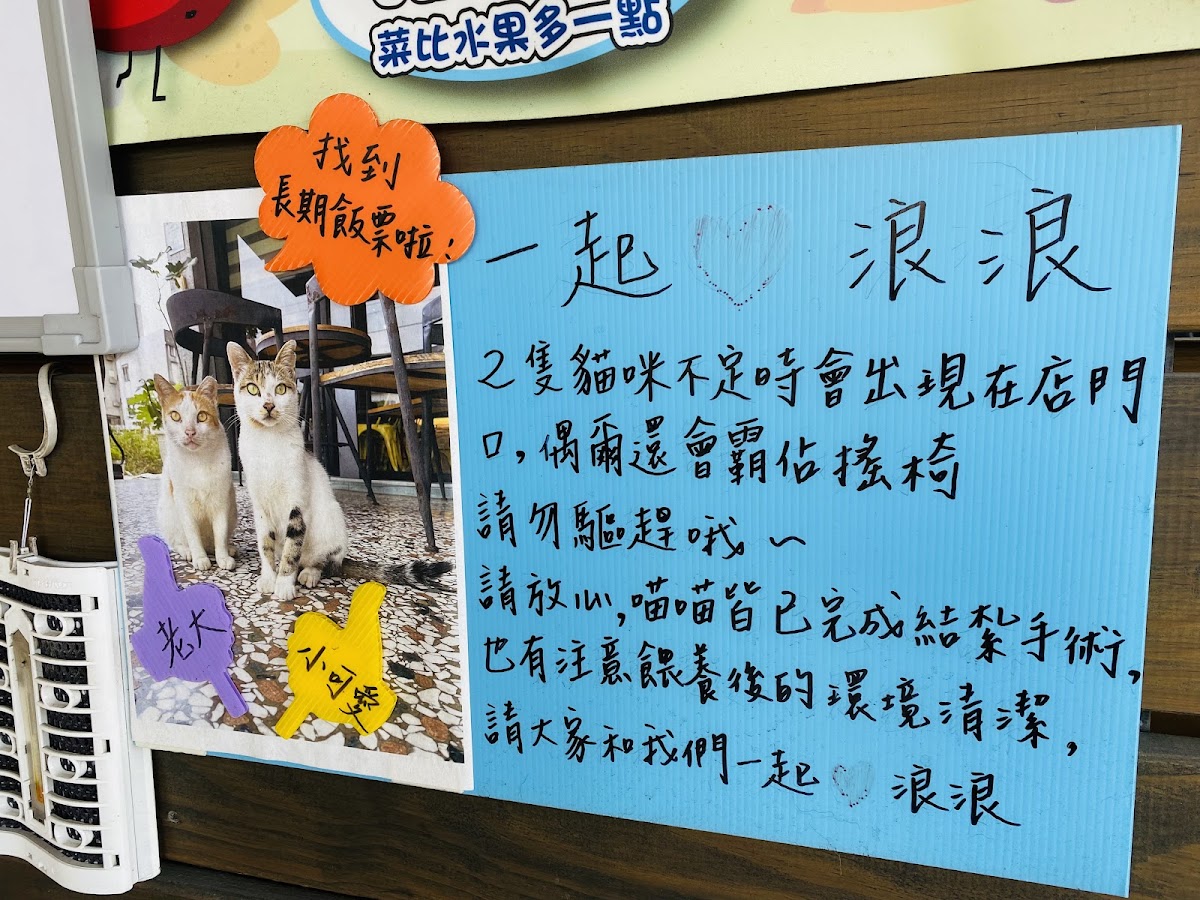 菜比水果多一點
找到
長期飯票啦!
一起♡浪浪
2隻貓咪不定時會出現在店門
口,偶爾還會霸佔搖椅
請勿驅趕哦~
請放心,喵喵皆已完成結紮手術,
也有注意餵養後的環境清潔,
請大家和我們一起♡浪浪
老大
小可愛